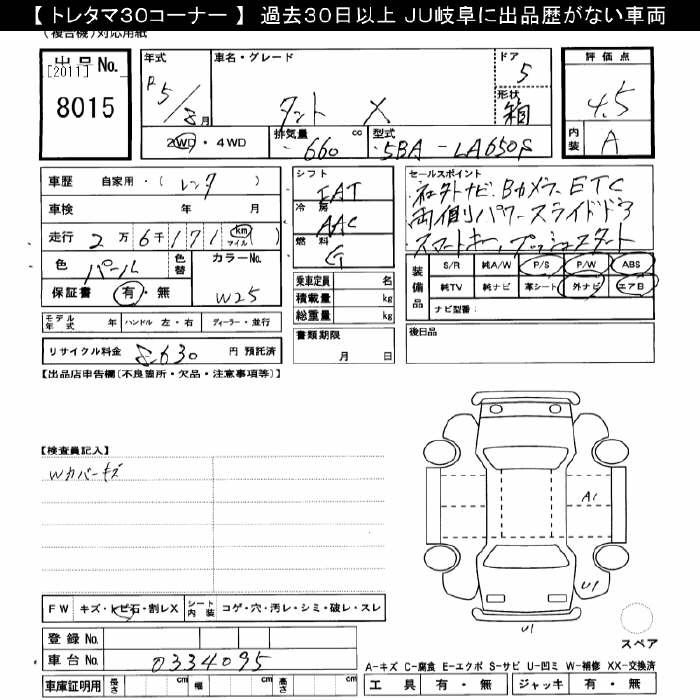 【 トレタマ30コーナー 】 過去30日以上 JU岐阜に出品歴がない車両
(複合機)対応用紙
出品 No.
[2011]
8015
年式
R5/8月
車名・グレード
タント X
ドア
5
形状
箱
評価点
4.5
内装
A
2WD・4WD
排気量
660 cc
型式
5BA-LA650S
車歴 自家用・( レンタ )
車検 年 月
走行 2万6千171 (km マイル)
色
パール
色替
カラーNo.
W25
保証書 有・無
シフト
IAT
冷房
AAC
燃料
G
乗車定員 名
積載量 kg
総重量 kg
セールスポイント
社外ナビ、Bカメラ、ETC
両側パワースライドドア
スマートキー、プッシュスタート
装備品
S/R 純A/W P/S P/W ABS
純TV 純ナビ 革シート 外ナビ エアB
ナビ型番:
モデル年式 年 ハンドル 左・右 ディーラー・並行
リサイクル料金 8,630 円 預託済
書類期限
月 日
後日品
【出品店申告欄(不良箇所・欠品・注意事項等)】
【検査員記入】
Wカバーキズ
A1
U1
U1
FW キズ・トビ石・割レX シート内装 コゲ・穴・汚レ・シミ・破レ・スレ
登録 No.
車台 No. 0334095
車庫証明用 長さ cm 幅 cm 高さ cm
スペア
A-キズ C-腐食 E-エクボ S-サビ U-凹ミ W-補修 XX-交換済
工具 有・無 ジャッキ 有・無